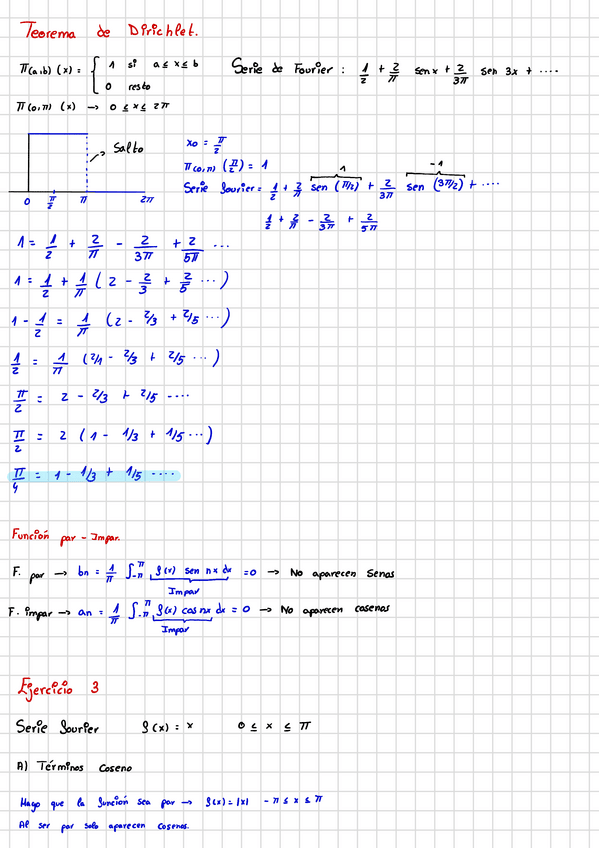 Teorema de Dirichlet.
π(a,b) (x) = { 1 si a ≤ x ≤ b
0 resto
Serie de Fourier : 1/2 + 2/π senx + 2/3π sen 3x + ....
π(0,π) (x) → 0 ≤ x ≤ 2π
Salto
0 π/2 π 2π
x0 = π/2
π(0,π) (π/2) = 1
1 -1
Serie Fourier = 1/2 + 2/π sen (π/2) + 2/3π sen (3π/2) + ....
1/2 + 2/π - 2/3π + 2/5π
1 = 1/2 + 2/π - 2/3π + 2/5π ...
1 = 1/2 + 1/π (2 - 2/3 + 2/5 ...)
1 - 1/2 = 1/π (2 - 2/3 + 2/5 ...)
1/2 = 1/π (2/1 - 2/3 + 2/5 ...)
π/2 = 2 - 2/3 + 2/5 ....
π/2 = 2 (1 - 1/3 + 1/5 ...)
π/4 = 1 - 1/3 + 1/5 ....
Función par - Impar.
F. par → bn = 1/π ∫-π^π f(x) sen nx dx = 0 → No aparecen Senos
Impar
F. impar → an = 1/π ∫-π^π f(x) cos nx dx = 0 → No aparecen cosenos
Impar
Ejercicio 3
Serie Fourier f(x) = x 0 ≤ x ≤ π
A) Términos Coseno
Hago que la función sea par → f(x) = |x| -π ≤ x ≤ π
Al ser par solo aparecen Cosenos.